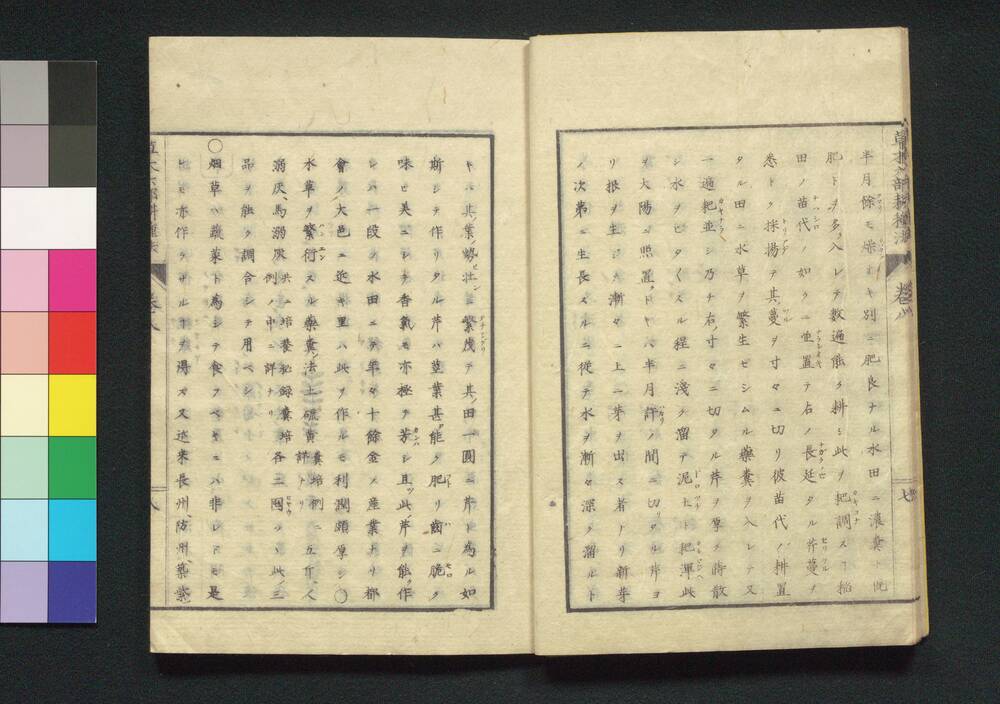 草木六部耕種法 卷八
半月餘モ燥オキ別ニ肥良ナル水田ニ濃糞ト
肥トヲ多入レテ數遍能ク耕シ此ヲ把調ス丁稲
田ノ苗代ノ如クニ埀置テ右ノ長延タル芹蔓ヲ
悉トク採揚テ其蔓ヲ寸々ニ切リ彼苗代ノ耕置
タル田ニ水草ヲ繁生セシムル藥糞ヲ入レテ又
一遍耙並シ乃チ右ノ寸々ニ切タル芹ヲ厚ク蒔散
シ水ヲヒタ〱スル程ニ淺ク溜テ泥土ト把渾此
ヲ大陽ニ照置クトキハ半月許ノ間ニ切リタル芹ヨ
リ根ヲ生シ漸々ニ上ニ芽ヲ出ス者ナリ新芽
ノ次第ニ生長スルニ從テ水ヲ漸々深ク溜ルト
七
キハ其葉ノ壮ニ繁茂テ其ノ田一圓ニ芹ト為ル如
斯シテ作リタル芹ハ莖葉甚能ク肥リ齒ニ脆ク
味ヒ美ニシテ香氣モ亦極テ芳シ且ツ此芹ヲ能ク作
レハ一段ノ水田ニテ年々十餘金ノ産業トナリ都
會ノ大邑ニ近キ里ハ此ヲ作ルモ利潤頗厚シ〇
水草ヲ繁衍スル藥糞ノ法土硫黄糞培例ニ詳ナリ五斤人
溺灰馬溺灰共ニ培養秘録糞培例ノ中ニ詳ナリ各二囤ツヽ此ノ三
品ヲ能ク調合シテ用ベシ
〇烟草ハ蔬菜ト為シテ食フベキニハ非レドモ是
モ亦作ラザル丁ヲ得ズ又近來長州防州藥
八